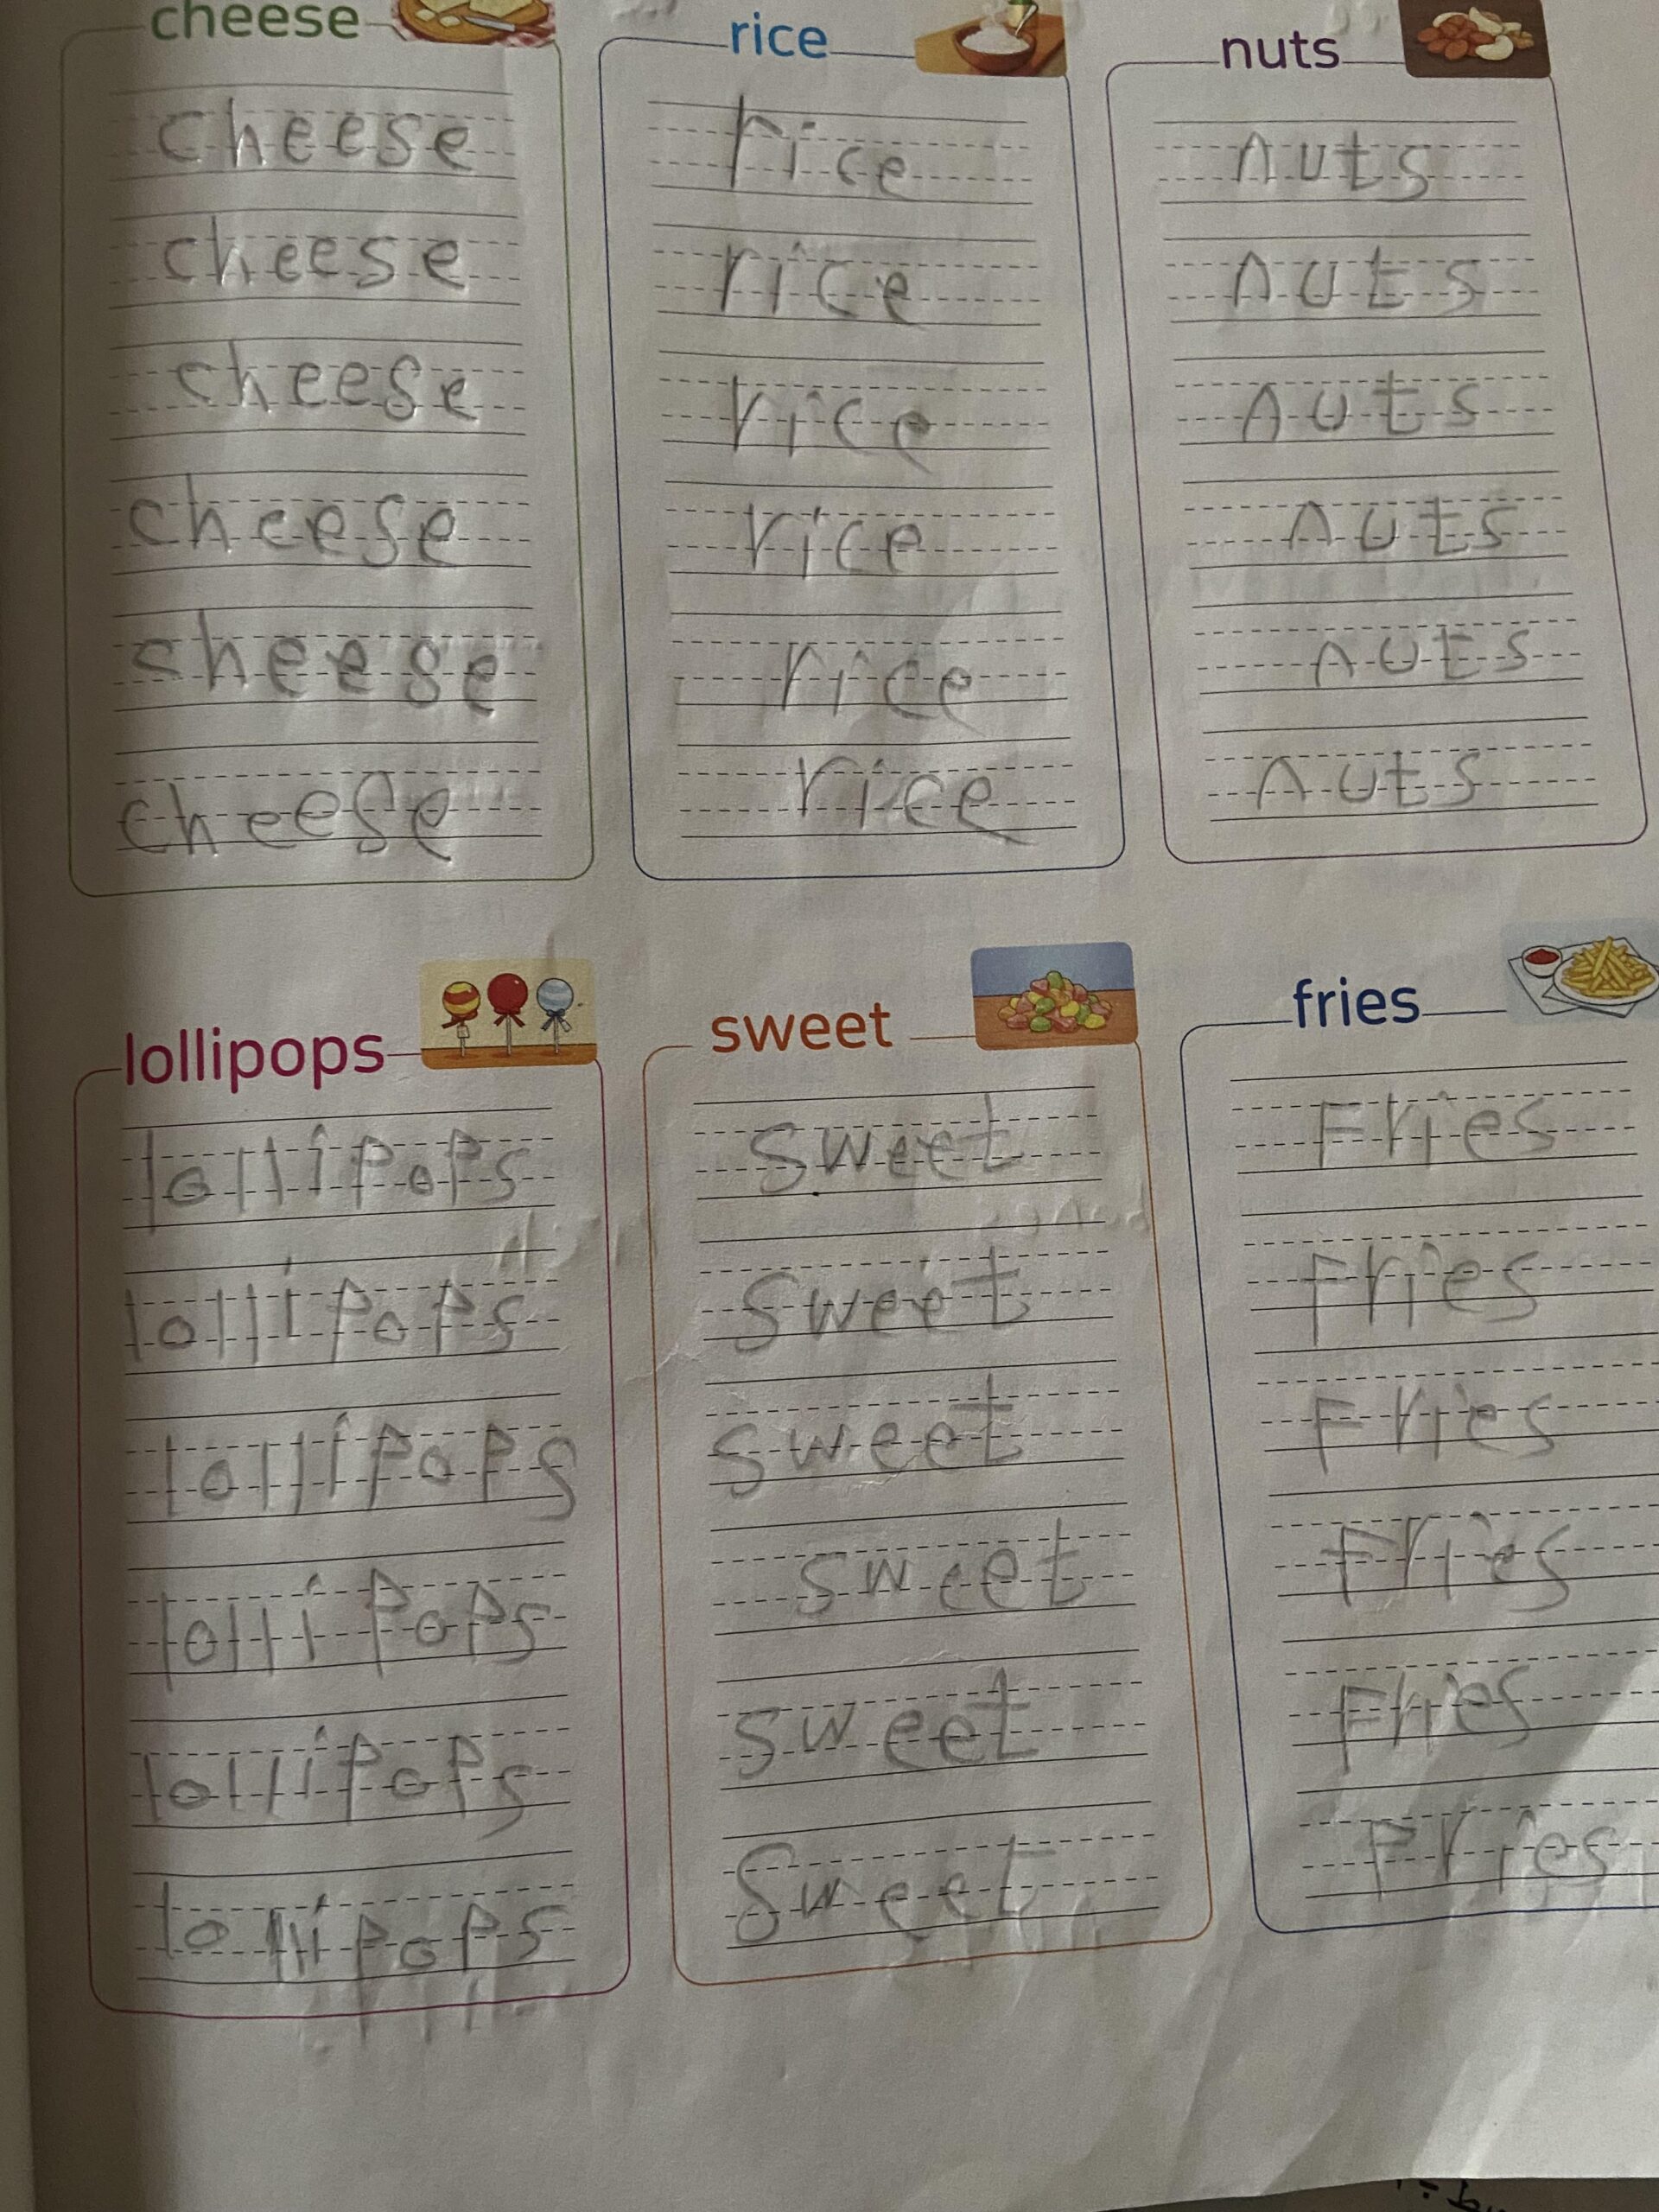 cheese
cheese
cheese
cheese
cheese
sheese
cheese
rice
rice
rice
rice
rice
rice
rice
nuts
nuts
nuts
nuts
nuts
nuts
nuts
lollipops
lollipops
lollipops
lollipops
lollipops
lollipops
lollipops
sweet
sweet
sweet
sweet
sweet
sweet
Sweet
fries
Fries
Fries
Fries
Fries
Fries
Fries